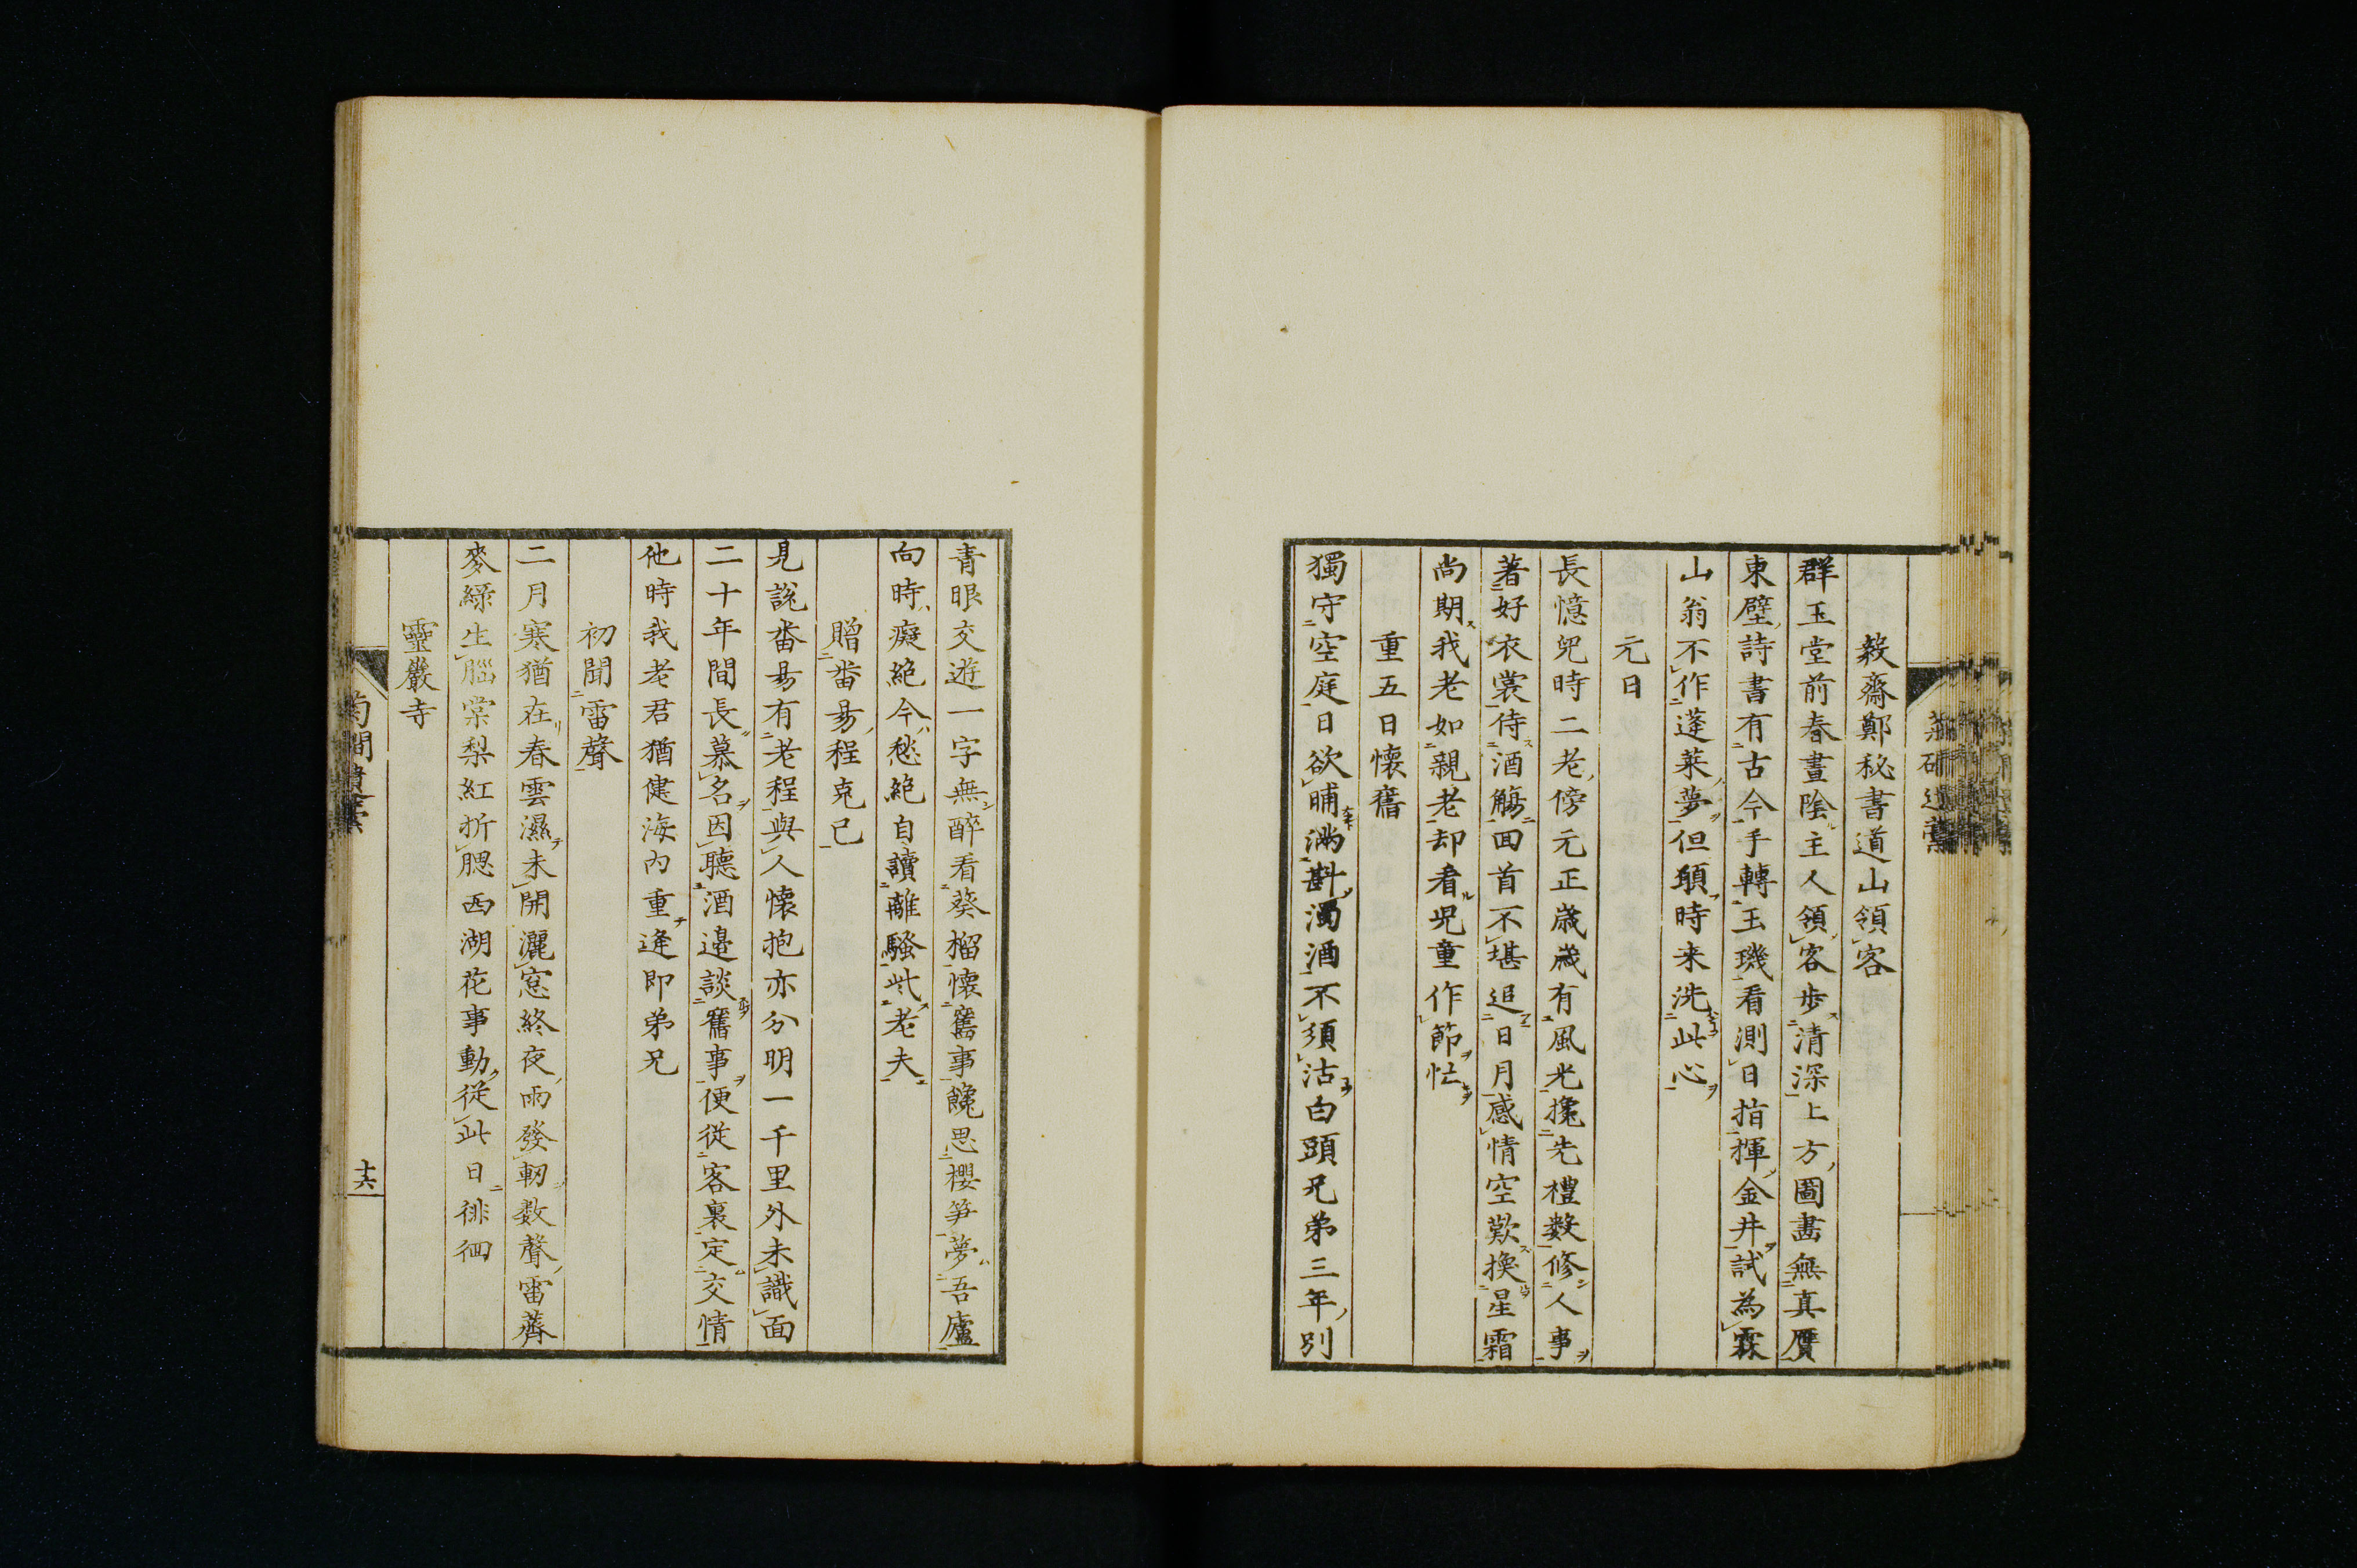 毅齋鄭秘書道山領客
群玉堂前春晝陰主人領客歩清深上方圖畵無真贋
東壁詩書有古今手轉玉璣看測日指揮金井試為霖
山翁不作蓬莱夢但願時来洗此心
元日
長憶兒時二老傍元正歳歳有風光攙先禮数修人事
著好衣裳侍酒觴回首不堪追日月感情空歎換星霜
尚期我老如親老却看児童作節忙
重五日懐舊
獨守空庭日欲晡満斟濁酒不須沽白頭兄弟三年別
青眼交遊一字無醉看葵榴懐舊事饞思櫻笋夢吾廬
向時癡絶今愁絶自讀離騒吊老夫
贈畨昜程克己
見説畨昜有老程與人懐抱亦分明一千里外未識面
二十年間長慕名因聴酒邉談舊事便従客裏定交情
他時我老君猶健海内重逢即弟兄
初聞雷聲
二月寒猶在春雲濕未開灑窓終夜雨發軔数聲雷薺
麥緑生腦棠梨紅折腮西湖花事動従此日徘徊
靈巖寺
十六